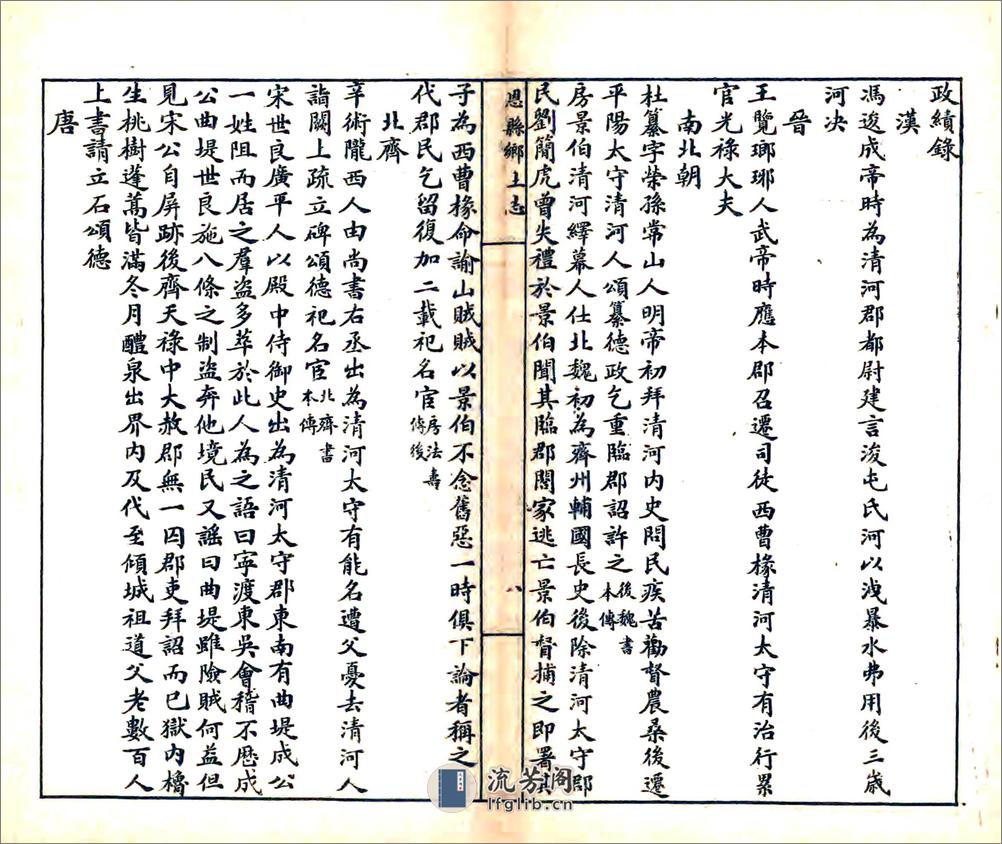 政績錄
漢
馮逡成帝時為清河郡都尉建言浚屯氏河以洩暴水弗用後三歲
河决
晉
王覽瑯琊人武帝時應本郡召遷司徒西曹椽清河太守有治行累
官光祿大夫
南北朝
杜纂字榮孫常山人明帝初拜清河内史問民疾苦勸督農桑後遷
平陽太守清河人頌纂德政乞重臨郡詔許之後魏書本傳
房景伯清河繹幕人仕北魏初為齊州輔國長史後除清河太守郡
民劉簡虎曾失禮於景伯聞其臨郡闔家逃亡景伯督捕之即署其
恩縣鄉土志
八
子為西曹椽命諭山賊賊以景伯不念舊惡一時俱下論者稱之
代郡民乞留復加二載祀名宦房法壽傳後
北齊
辛術隴西人由尚書右丞出為清河太守有能名遭父憂去清河人
詣闕上疏立碑頌德祀名宦北齊書本傳
宋世良廣平人以殿中侍御史出為清河太守郡東南有曲堤成公
一姓阻而居之羣盗多萃於此人為之語曰寧渡東吳會稽不歷成
公曲堤世良施八條之制盗奔他境民又謡曰曲堤雖險賊何益但
見宋公自屏跡後齊天祿中大赦郡無一囚郡吏拜詔而已獄内櫓
生桃樹蓬蒿皆滿冬月醴泉出界内及代至傾城祖道父老數百人
上書請立石頌德
唐
流芳阁
lfglib.cn